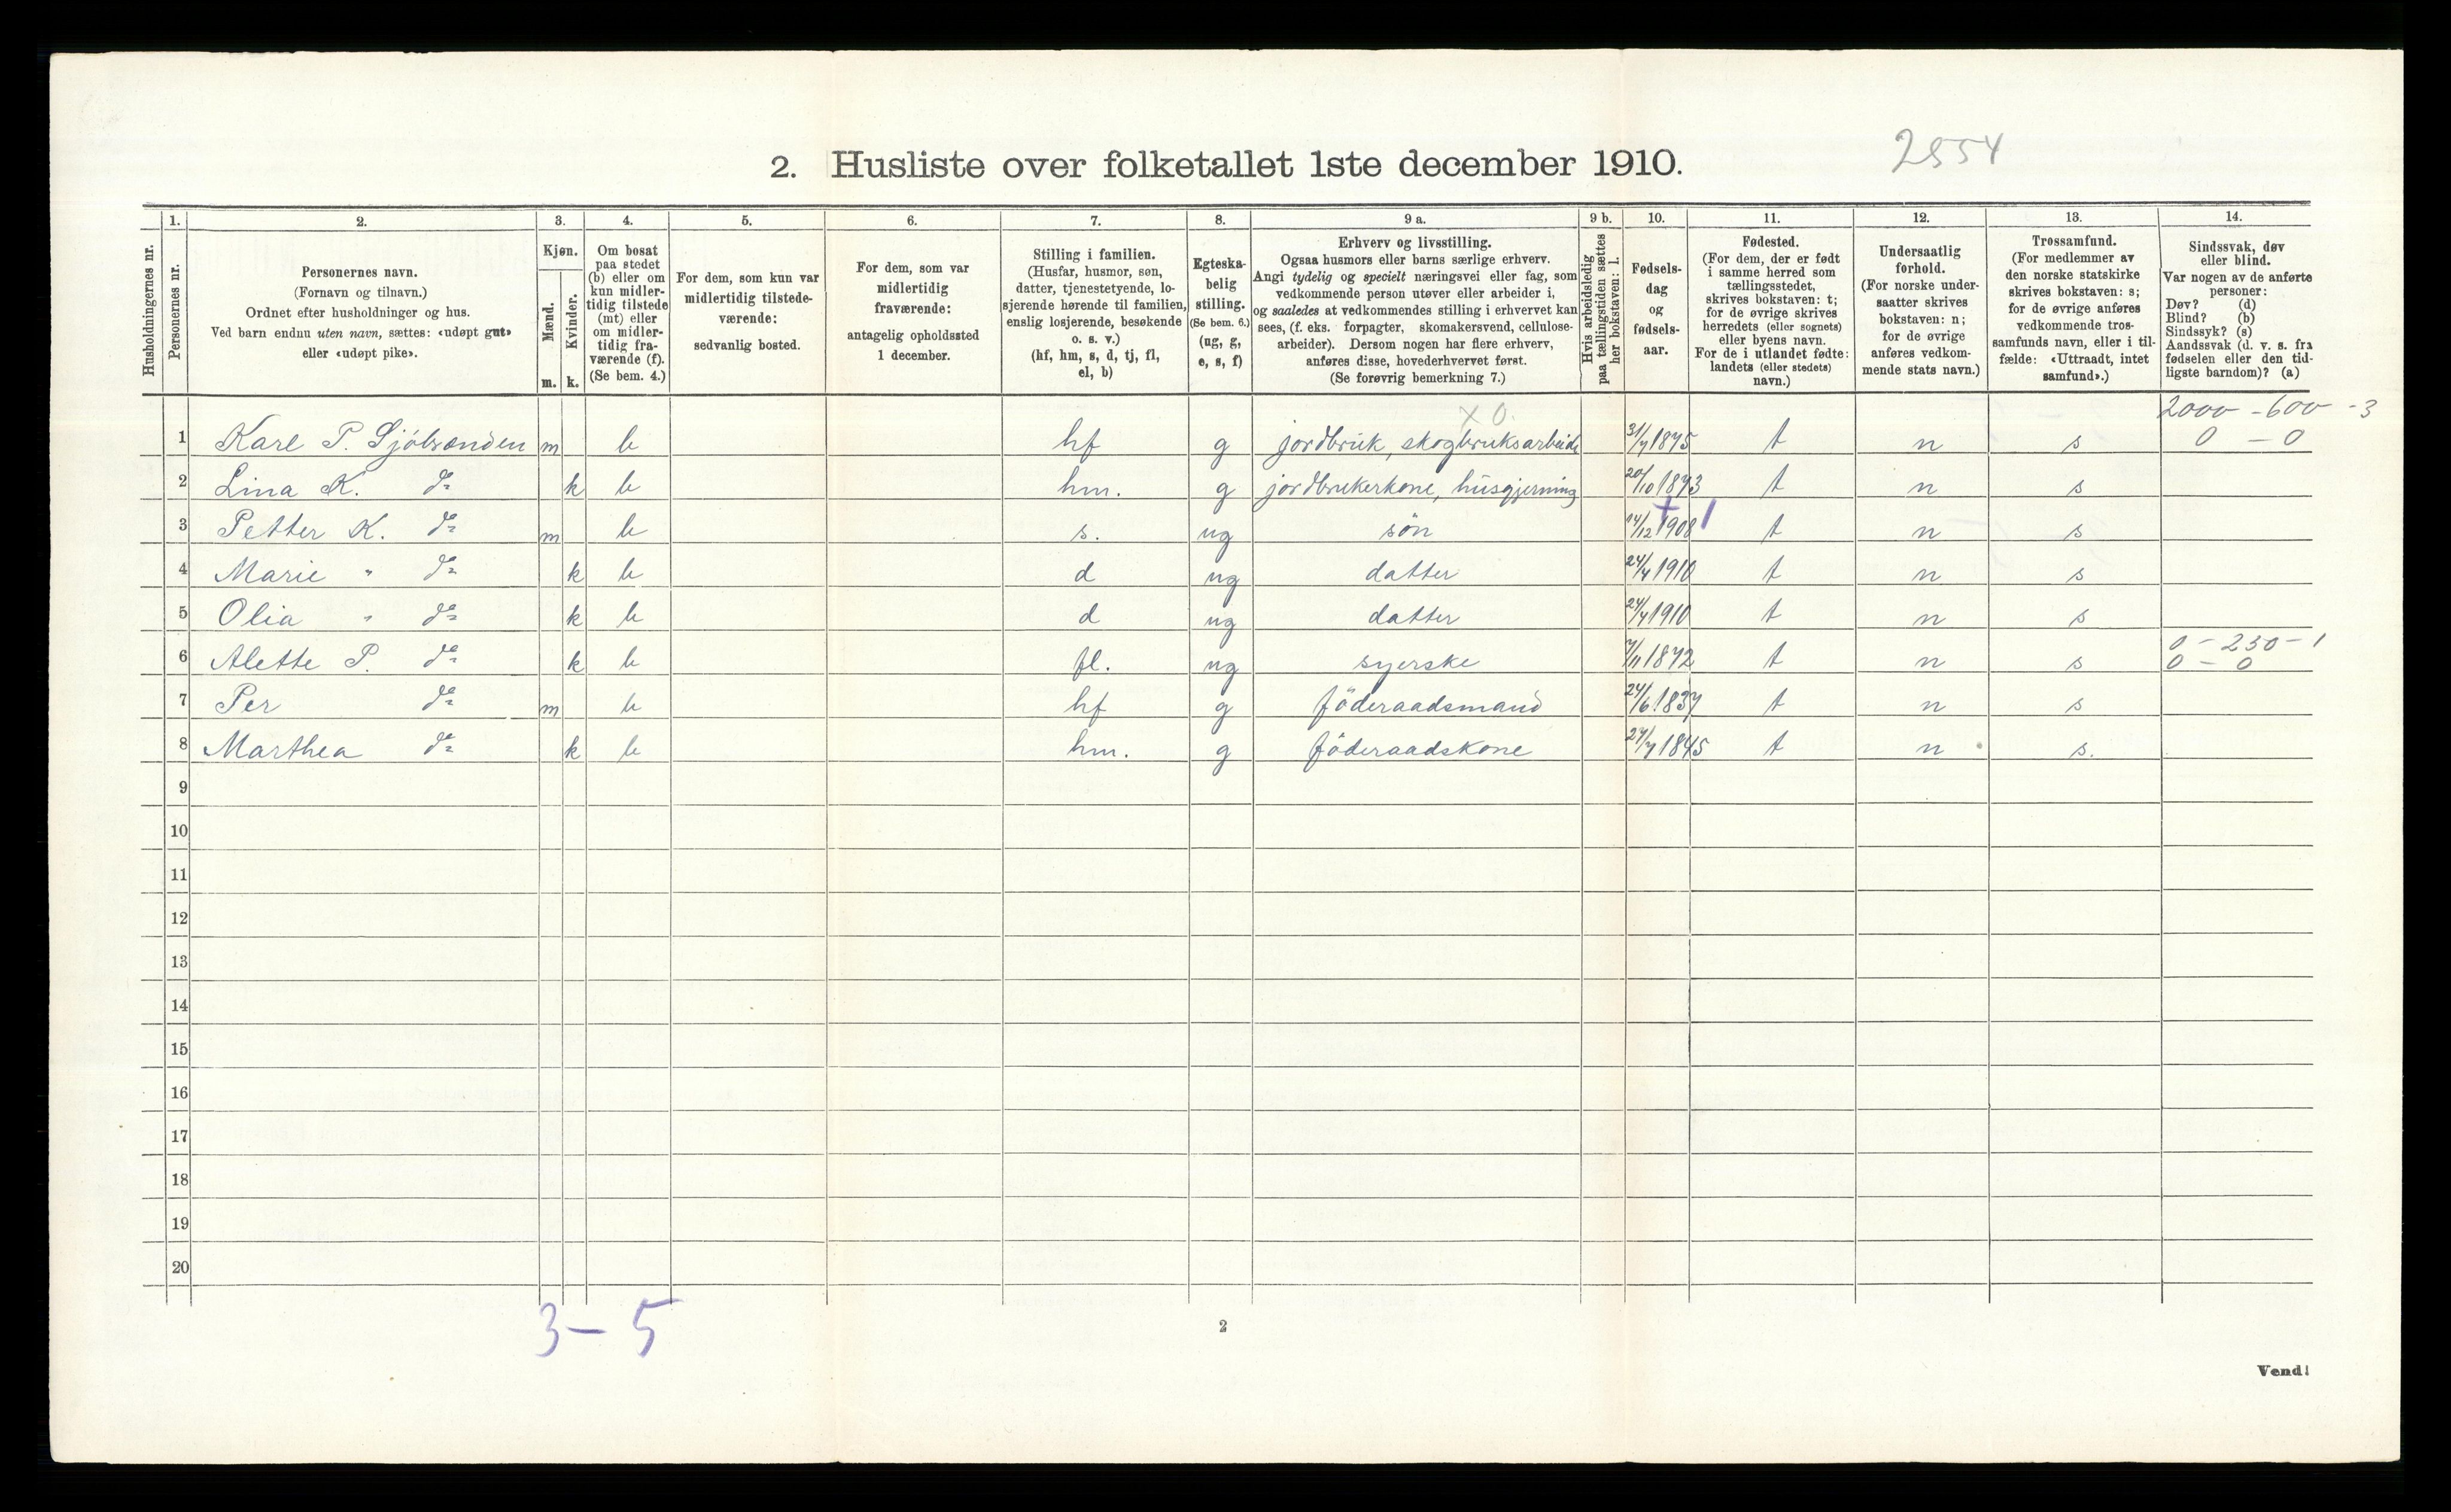 2554
2. Husliste over folketallet 1ste december 1910.
Husholdningernes nr.
1.
Personernes nr.
2.
Personernes navn.
(Fornavn og tilnavn.)
Ordnet efter husholdninger og hus.
Ved barn endnu uten navn, sættes: «udøpt gut»
eller «udøpt pike».
3.
Kjøn.
Mænd.
m.
Kvinder.
k.
4.
Om bosat
paa stedet
(b) eller om
kun midler-
tidig tilstede
(mt) eller
om midler-
tidig fra-
værende (f).
(Se bem. 4.)
5.
For dem, som kun var
midlertidig tilstede-
værende:
sedvanlig bosted.
6.
For dem, som var
midlertidig
fraværende:
antagelig opholdssted
1 december.
7.
Stilling i familien.
(Husfar, husmor, søn,
datter, tjenestetyende, lo-
sjerende hørende til familien,
enslig losjerende, besøkende
o. s. v.)
(hf, hm, s, d, tj, fl,
el, b)
8.
Egteska-
belig
stilling.
(Se bem. 6.)
(ug, g,
e, s, f)
9 a.
Erhverv og livsstilling.
Ogsaa husmors eller barns særlige erhverv.
Angi tydelig og specielt næringsvei eller fag, som
vedkommende person utøver eller arbeider i,
og saaledes at vedkommendes stilling i erhvervet kan
sees, (f. eks. forpagter, skomakersvend, cellulose-
arbeider). Dersom nogen har flere erhverv,
anføres disse, hovederhvervet først.
(Se forøvrig bemerkning 7.)
9 b.
Hvis arbeidsledig
paa tællingstiden sættes
her bokstaven: l.
10.
Fødsels-
dag
og
fødsels-
aar.
11.
Fødested.
(For dem, der er født
i samme herred som
tællingsstedet,
skrives bokstaven: t;
for de øvrige skrives
herredets (eller sognets)
eller byens navn.
For de i utlandet fødte:
landets (eller stedets)
navn.)
12.
Undersaatlig
forhold.
(For norske under-
saatter skrives
bokstaven: n;
for de øvrige
anføres vedkom-
mende stats navn.)
13.
Trossamfund.
(For medlemmer av
den norske statskirke
skrives bokstaven: s;
for de øvrige anføres
vedkommende tros-
samfunds navn, eller i til-
fælde: «Uttraadt, intet
samfund».)
14.
Sindssvak, døv
eller blind.
Var nogen av de anførte
personer:
Døv? (d)
Blind? (b)
Sindssyk? (s)
Aandssvak (d. v. s. fra
fødselen eller den tid-
ligste barndom)? (a)
X 0. 2000 - 600 - 3
1 Karl P. Sjölsanden m b hf g jordbruk, skogbruksarbeide 31/7 1875 t n s 0 - 0
2 Lina K. do k b hm. g jordbrukerkone, husgjerning 20/10 1873 t n s
3 Petter K. do m b s. ug sön 14/12 1908 t n s
4 Marie " do k b d ug datter 24/4 1910 t n s
5 Olia " do k b d ug datter 24/4 1910 t n s
0 - 250 - 1
6 Alette P. do k b fl. ug syerske 7/11 1872 t n s 0 - 0
7 Per do m b hf g föderaadsmand 24/6 1837 t n s
8 Marthea do k b hm. g föderaadskone 27/7 1845 t n s.
9
10
11
12
13
14
15
16
17
18
19
20
3 - 5
2
Vend!